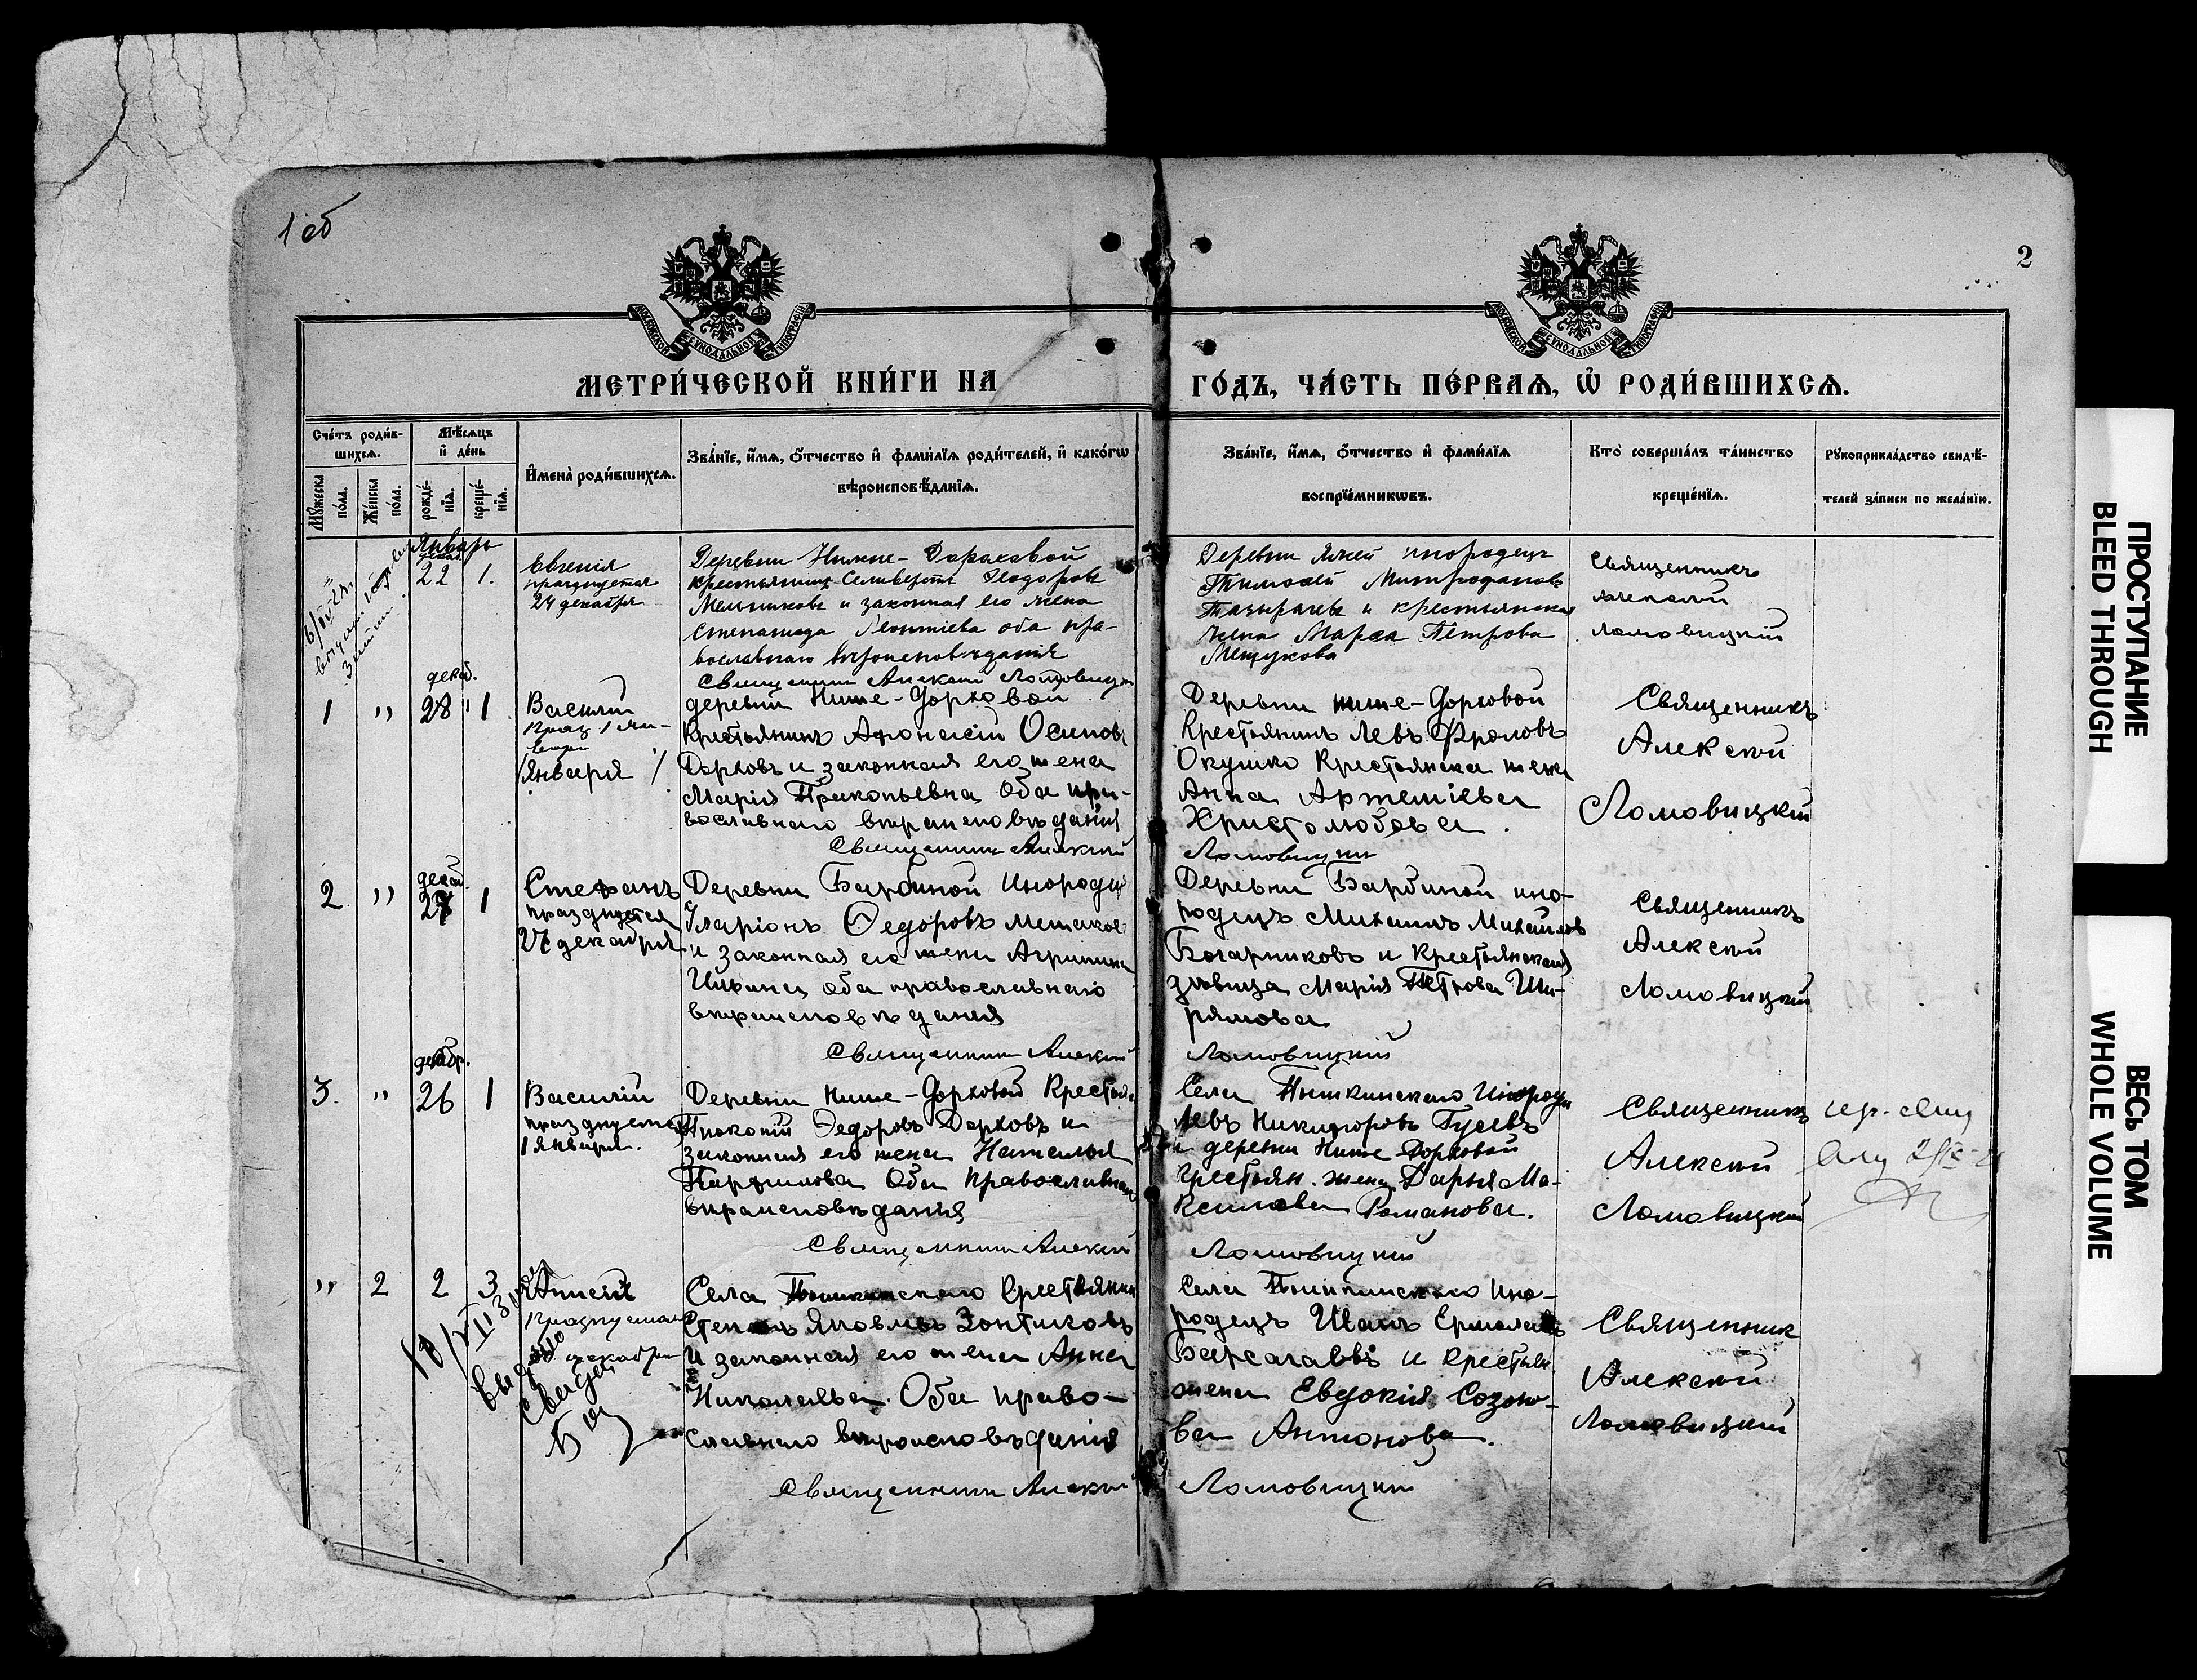 1 об
2
МОСКОВСКОЙ СѴНОДАЛЬНОЙ ТИПОГРАФІИ
МОСКОВСКОЙ СѴНОДАЛЬНОЙ ТИПОГРАФІИ
МЕТРИ́ЧЕСКОЙ КНИ́ГИ НА
ГО́ДЪ, ЧА́СТЬ ПЕ́РВАѦ, Ѡ҆ РОДИ́ВШИХСѦ.
Сче́тъ роди́в-
шихсѧ.
Мꙋжеска по́ла.
Же́нска по́ла.
Мѣ́сѧцъ
и҆ де́нь
рожде́-
нїѧ.
креще́-
нїѧ.
И҆мена̀ роди́вшихсѧ.
Зва́нїе, и҆́мѧ, ѻ҆́тчество и҆ фами́лїѧ роди́телей, и҆ како́гѡ
вѣроисповѣ́данїѧ.
Зва́нїе, и҆́мѧ, ѻ҆́тчество и҆ фами́лїѧ
воспрїе́мникѡвъ.
Кто̀ соверша́лъ та́инство
креще́нїѧ.
Рꙋкоприкла́дство свидѣ́-
телей за́писи по жела́нїю.
Январь
22 1.
Евгенія
празднуется
24 декабря
Деревни Нижне-
крестьянинъ Селиверстъ Ѳеодоровъ
Мельниковъ и законная его жена
Степанида Леонтіева оба пра-
вославнаго вѣроисповѣданія
Священникъ Алексій Ломовицкій
Деревни инородецъ
Тимоѳей Митрофановъ
и крестьянская
жена Марѳа Петрова
Мещукова
Священникъ
Алексій
Ломовицкій
декаб.
1 " 28 1
Василій
Января
деревни Ниже-Дорховой
Крестьянинъ Афонасій Осиповъ
Дорховъ и законная его жена
Марія Прокопьевна Оба пра-
вославнаго вѣроисповѣданія
Священникъ Алексій
Деревни ниже-Дорховой
Крестьянинъ Левъ Фроловъ
Окушко Крестьянска жена
Анна Артемьева
Христолюбова.
Ломовицкій
Священникъ
Алексій
Ломовицкій
декаб.
2 " 27 1
Стефанъ
празднуется
27 декабря
Деревни Барбиной Инородецъ
Иларіонъ Ѳедоровъ
и законная его жена Агрипина
Оба православнаго
вѣроисповѣданія
Священникъ Алексій
Деревни Барбиной ино-
родецъ Михаилъ Михайловъ
Богарниковъ и Крестьянская
дѣвица Марія Петрова Ши-
рямова
Ломовицкій
Священникъ
Алексій
Ломовицкій
декабр.
3. " 26 1
Василій
празднуется
1 Января.
Деревни Ниже-Дорховой Крестьян
Прокопій Ѳедоровъ Дорховъ и
законная его жена Наталья
Парфилова Оба Православнаго
вѣроисповѣданія
Священникъ Алексій
Села Пышкинскаго Инородец
Левъ Никифоровъ Гусевъ
и деревни Ниже Дорховой
Крестьян. жена Дарья Ма-
ксимова Романова.
Ломовицкій
Священникъ
Алексій
Ломовицкій
" 2 2 3
Анисія
Празнуется
30 декабря
Села Пышкинскаго Крестьянин
Степанъ Яковлевъ Зонтиковъ
и законная его жена Анна
Николаева. Оба право-
славнаго вѣроисповѣданія
Священникъ Алексій
Села Пышкинскаго Ино-
родецъ Иванъ Ермолаевъ
и крестьян.
жена Евдокія Созоно-
ва Антонова.
Ломовицкій
Священник
Алексій
Ломовицкій
ПРОСТУПАНИЕ
BLEED THROUGH
ВЕСЬ ТОМ
WHOLE VOLUME